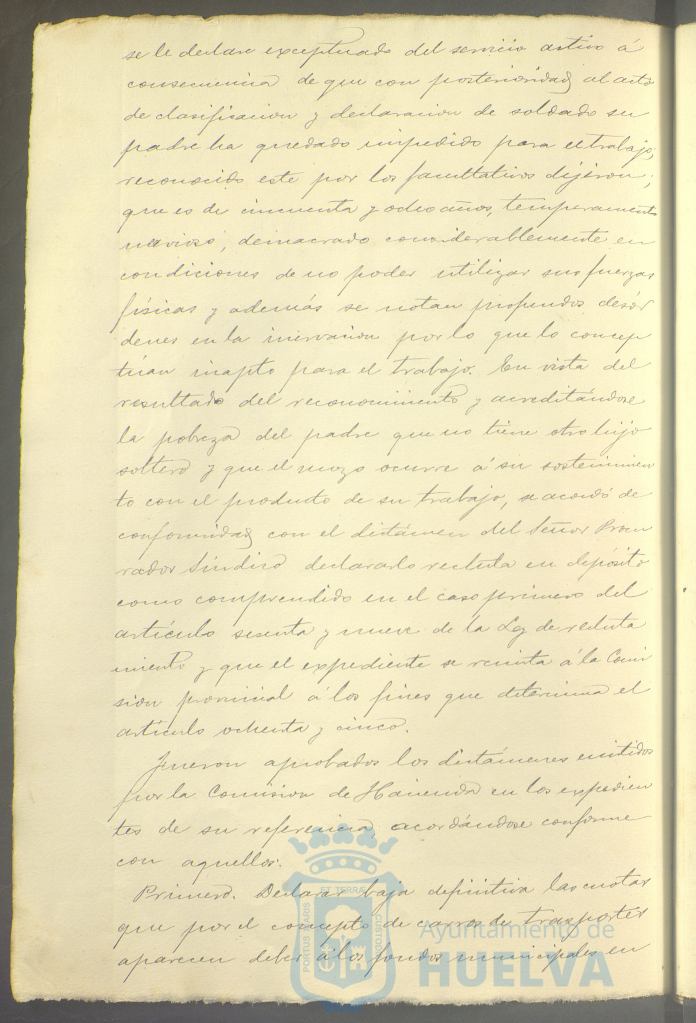 se le declare exceptuado del servicio activo á
consecuencia de que con posterioridad al acto
de clasificacion y declaracion de soldado su
padre ha quedado impedido para el trabajo;
reconocido este por los facultativos dijeron;
que es de cincuenta y ocho años, temperamento
nervioso, demacrado considerablemente en
condiciones de no poder utilizar sus fuerzas
físicas y además se notan profundos desór
denes en la inervacion por lo que lo concep
túan inapto para el trabajo. En vista del
resultado del reconocimiento y acreditándose
la pobreza del padre que no tiene otro hijo
soltero y que el mozo ocurre á su sostenimien
to con el producto de su trabajo, se acordó de
conformidad con el dictámen del Señor Procu
rador Síndico declararlo recluta en depósito
como comprendido en el caso primero del
artículo sesenta y nueve de la Ley de recluta
miento y que el expediente se remita á la Comi
sion provincial á los fines que determina el
artículo ochenta y cinco.
Fueron aprobados los dictámenes emitidos
por la Comision de Hacienda en los expedien
tes de su referencia, acordándose conforme
con aquellos.
Primero. Declarar baja definitiva las cuotas
que por el concepto de carros de trasportes
aparecen deber á los fondos municipales en
PORTUS MARIS
ET TERRÆ
CUSTODIA
Ayuntamiento de
HUELVA